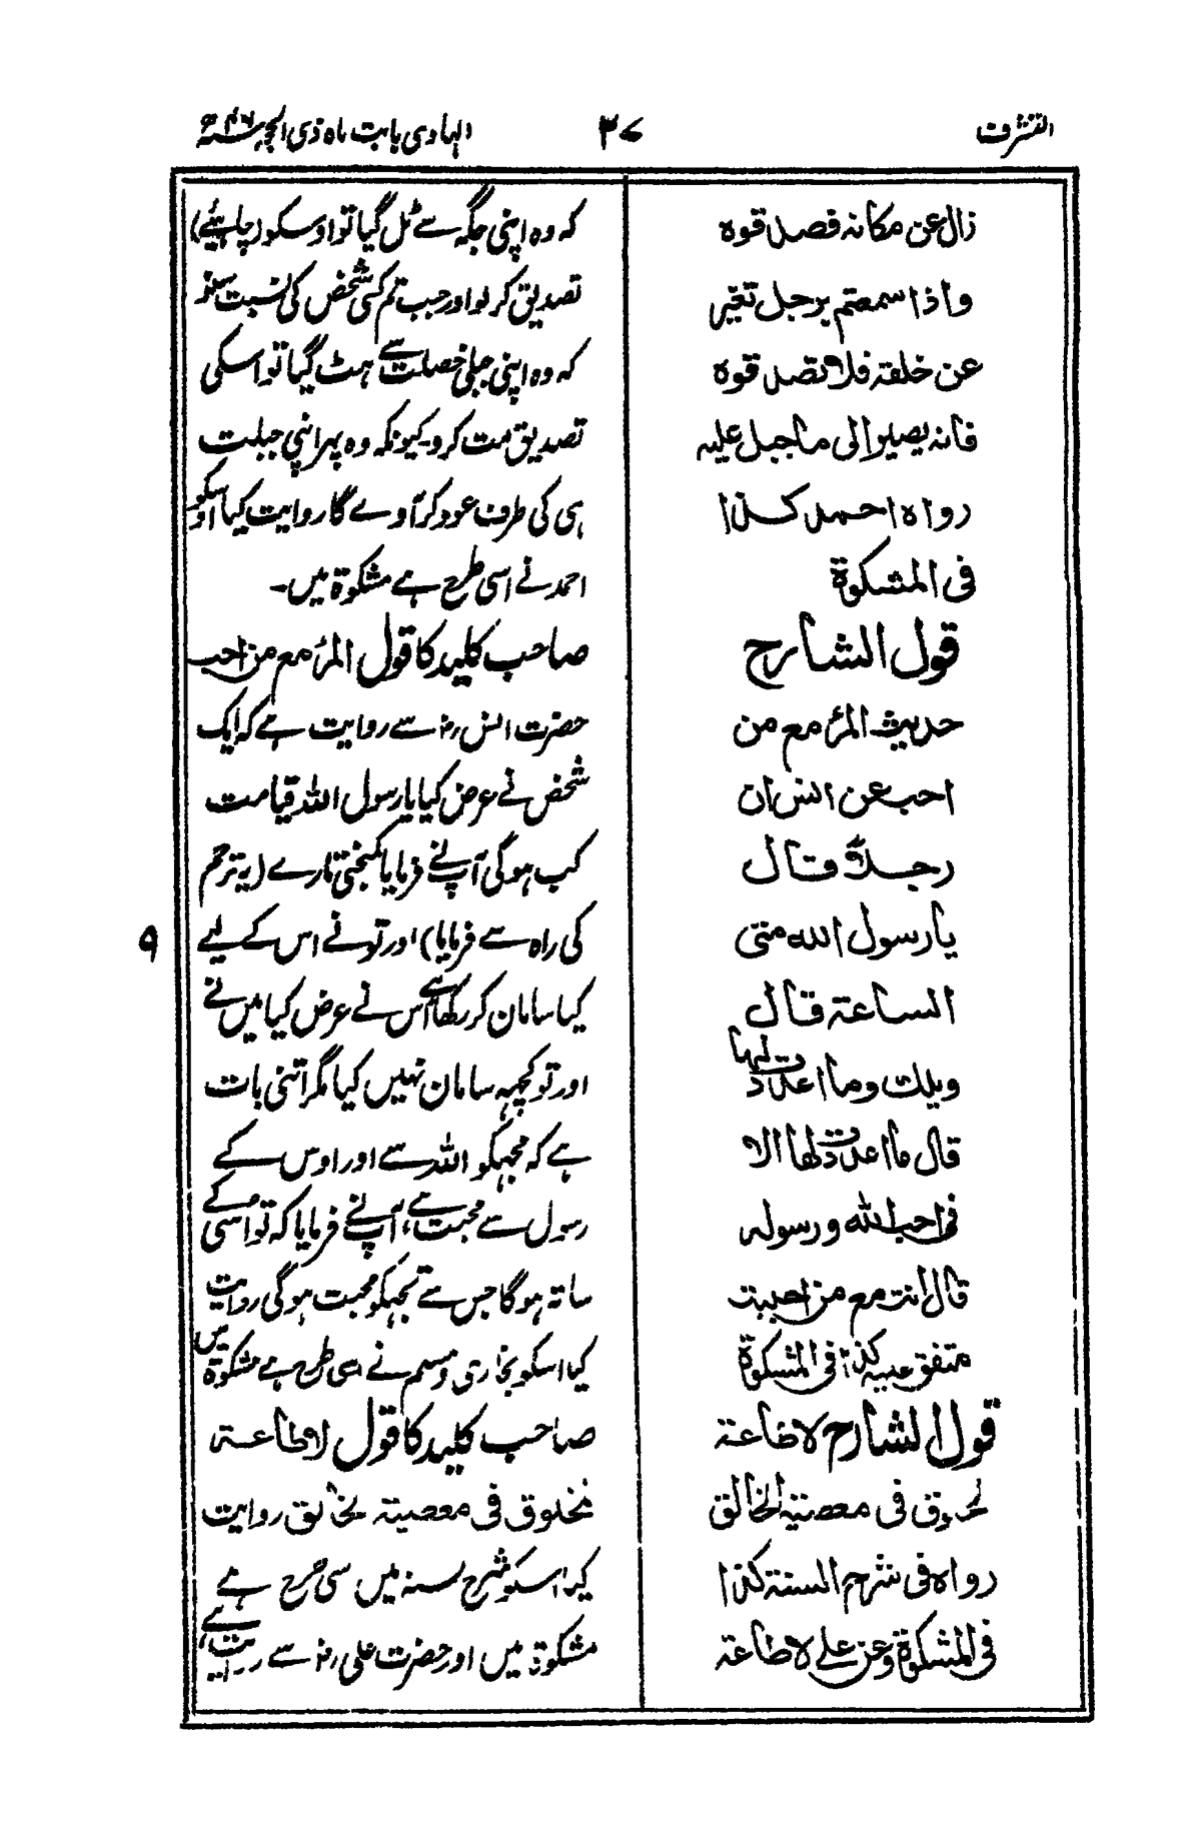 التشرف
۳۷
الہادی بابت ماہ ذی الحجہ
زال عن مكانه فصدقوه
واذا سمعتم برجل تغير
عن خلقه فلا تصدقوه
فانه يصير الى ما جبل عليه
رواه احمد كذا
فی المشكوة
قول الشارح
حديث المرٔ مع من
احب عن انس ان
رجلاً قال
يا رسول الله متى
الساعة قال
ويلك وما اعددت لها
قال ما اعددت لها الا
انی احب الله ورسوله
قال انت مع من احببت
متفق عليه كذا فی المشكوة
قول الشارح لا طاعة
لمخلوق فی معصية الخالق
رواه فی شرح السنة كذا
فی المشكوة وعن علی لا طاعة
کہ وہ اپنی جگہ سے ٹل گیا تو اوسکو (چاہیئے)
تصدیق کر لو اور جب تم کسی شخص کی نسبت سنو
کہ وہ اپنی جبلی خصلت سے ہٹ گیا تو اسکی
تصدیق مت کرو۔ کیونکہ وہ پہر اپنی جبلت
ہی کی طرف عود کر آوے گا روایت کیا اوسکو
احمد نے اسی طرح ہے مشکوۃ میں۔
صاحب کلید کا قول المرٔ مع من احب
حضرت انس رضہ سے روایت ہے کہ ایک
شخص نے عرض کیا یا رسول اللہ قیامت
کب ہو گی آپنے فرمایا کمبختی مارے (یہ ترحم
کی راہ سے فرمایا) اور تو نے اس کے لیے
۹
کیا سامان کر رکھا ہے اس نے عرض کیا میں نے
اور تو کچہہ سامان نہیں کیا مگر اتنی بات
ہے کہ مجہکو اللہ سے اور اوس کے
رسول سے محبت ہے، آپنے فرمایا کہ تو اسی کے
ساتہ ہو گا جس سے تجہکو محبت ہو گی روایت
کیا اسکو بخاری ومسلم نے اسی طرح ہے مشکوۃ میں
صاحب کلید کا قول لا طاعة
لمخلوق فی معصیتہ الخالق روایت
کیا اسکو شرح السنہ میں اسی طرح ہے
مشکوۃ میں اور حضرت علی رضہ سے روایت ہے،